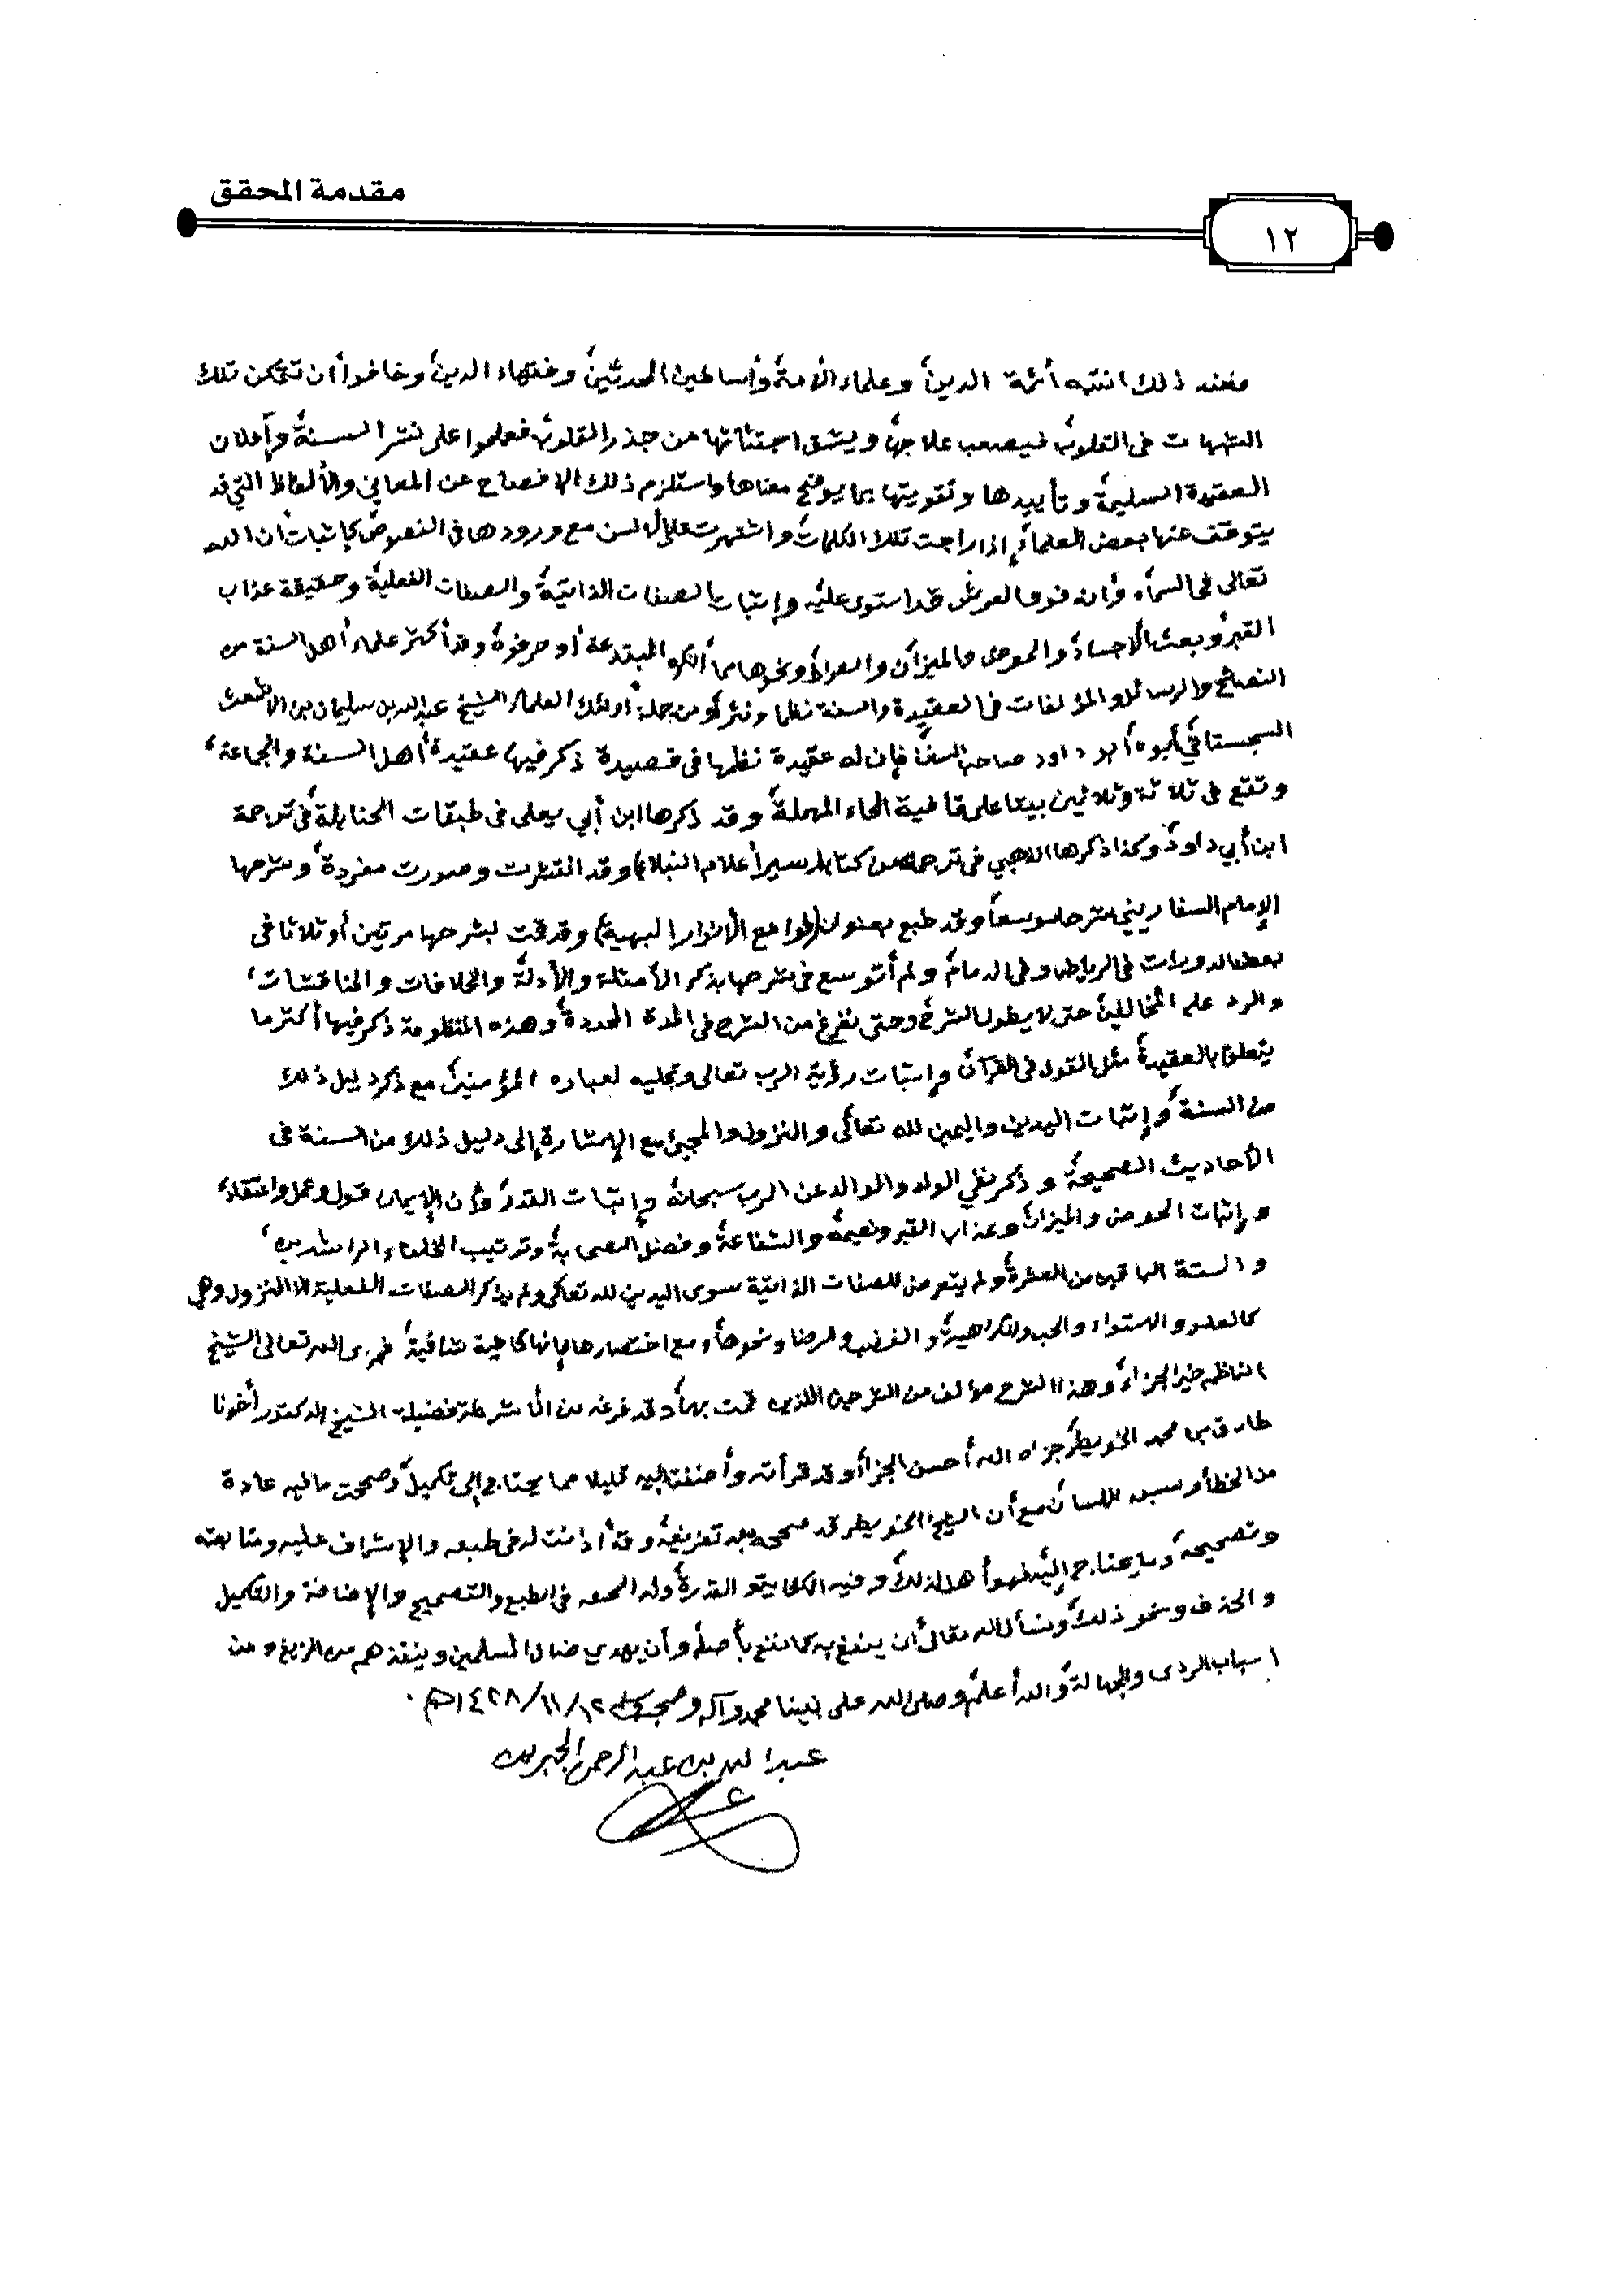 مقدمة المحقق
١٢
فعند ذلك انتبه أئمة الدين، وعلماء الأمة، وأساطين المحدثين، وفقهاء الدين، وخافوا أن تتمكن تلك
الشبهات في القلوب، فيصعب علاجها، ويشق اجتثاثها من جذر القلوب، فعملوا على نشر السنة، وإعلان
العقيدة السليمة، وتأييدها وتقويتها بما يوضح معناها، واستلزم ذلك الإفصاح عن المعاني والألفاظ التي قد
يتوقف عنها بعض العلماء، إذا راجت تلك الكلمات، واشتهرت على الألسن مع ورودها في النصوص، كإثبات أن الله
تعالى في السماء، وأنه فوق العرش قد استوى عليه، وإثبات الصفات الذاتية، والصفات الفعلية، وحقيقة عذاب
القبر، وبعث الأجساد، والحوض والميزان، والصراط، ونحوها مما أنكره المبتدعة، أو حرفوه، وقد أكثر علماء أهل السنة من
النصائح والرسائل والمؤلفات في العقيدة والسنة نظما ونثرا، ومن جملة أولئك العلماء الشيخ عبدالله بن سليمان بن الأشعث
السجستاني، أبوه أبو داود صاحب السنن، فإن له عقيدة نظمها في قصيدة ذكر فيها عقيدة أهل السنة والجماعة،
وتقع في ثلاثة وثلاثين بيتا على قافية الحاء المهملة، وقد ذكرها ابن أبي يعلى في طبقات الحنابلة، في ترجمة
ابن أبي داود، وكذا ذكرها الذهبي في ترجمته من كتابه (سير أعلام النبلاء) وقد انتشرت وصورت مفردة، وشرحها
الإمام السفاريني شرحا موسعا، وقد طبع بعنوان (لوامع الأنوار البهية) وقد قمت بشرحها مرتين أو ثلاثا في
بعض الدورات في الرياض، وفي الدمام، ولم أتوسع في شرحها بذكر الأمثلة والأدلة، والخلافات والمناقشات،
والرد على المخالفين، حتى لا يطول الشرح، وحتى نفرغ من الشرح في المدة المحددة، وهذه المنظومة ذكر فيها أكثر ما
يتعلق بالعقيدة، مثل القول في القرآن، وإثبات رؤية الرب تعالى وتجليه لعباده المؤمنين، مع ذكر دليل ذلك
من السنة، وإثبات اليدين واليمين لله تعالى، والنزول والمجيئ مع الإشارة إلى دليل ذلك من السنة في
الأحاديث الصحيحة، وذكر نفي الولد والوالد عن الرب سبحانه، وإثبات القدر، وأن الإيمان قول وعمل واعتقاد،
وإثبات الحوض والميزان، وعذاب القبر ونعيمه، والشفاعة، وفضل الصحابة، وترتيب الخلفاء الراشدين،
والستة الباقين من العشرة، ولم يتعرض للصفات الذاتية سوى اليدين لله تعالى، ولم يذكر الصفات الفعلية إلا النزول وهي
كالعلو والاستواء والحب والكراهية، والغضب والرضا ونحوها، ومع اختصارها فإنها كافية شافية، فجزى الله تعالى الشيخ
الناظم خير الجزاء، وهذا الشرح مؤلف من الشرحين اللذين قمت بهما، وقد فرغه من الأشرطة فضيلة الشيخ الدكتور أخونا
طارق بن محمد الخويطر، جزاه الله أحسن الجزاء، وقد قرأته، وأضفت إليه قليلا مما يحتاج إلى تكميل، وصححت ما فيه عادة
من الخطأ وسبق اللسان، مع أن الشيخ الخويطر قد صححه بعد تفريغه، وقد أذنت له في طبعه والإشراف عليه ومتابعته
وتصحيحه، وما يحتاج إليه، فهو أهل لذلك، وفيه الكفاية والقدرة، وله الحق في الطبع والتصحيح والإضافة والتكميل
والحذف ونحو ذلك، ونسأل الله تعالى أن ينفع به كما نفع بأصله، وأن يهدي ضال المسلمين وينقذهم من الزيغ، ومن
أسباب الردى والجهالة، والله أعلم، وصلى الله على نبينا محمد وآله وصحبه وسلم ١٢/١١/١٤٢٨هـ.
عبدالله بن عبدالرحمن الجبرين